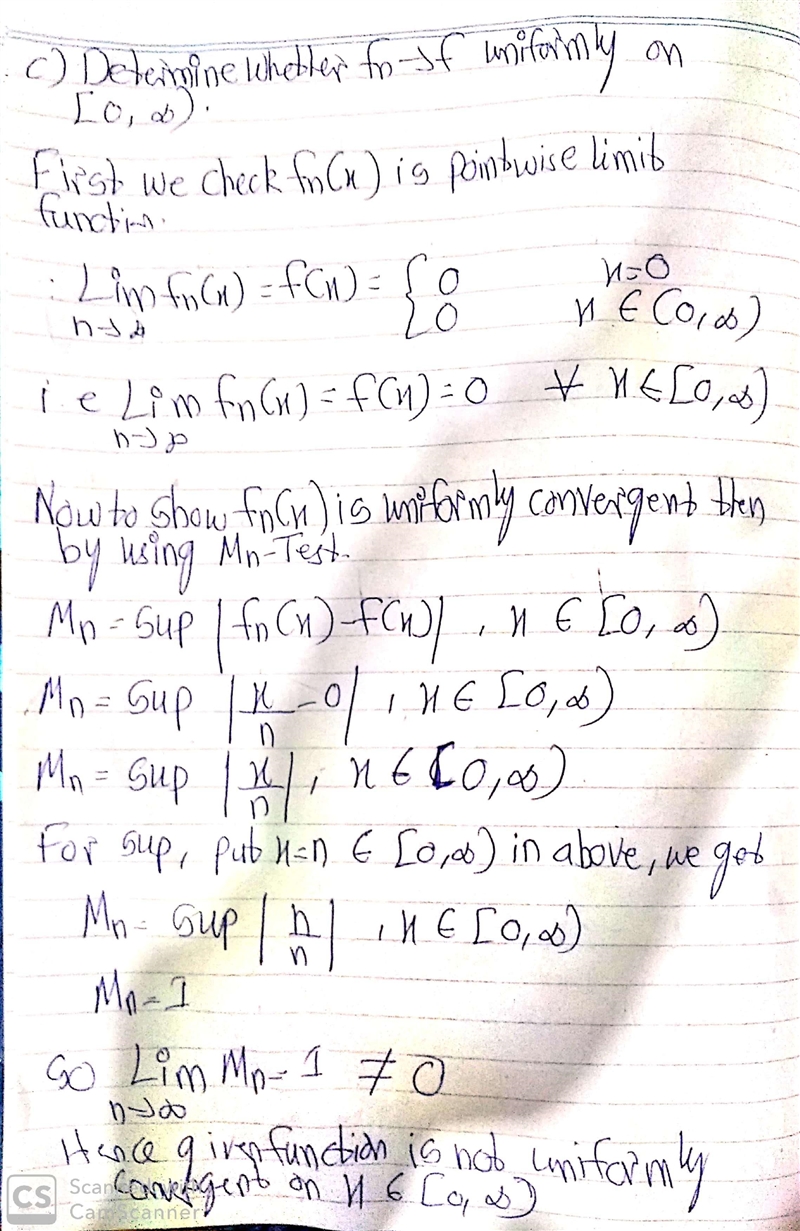 c) Determine whether fn→f uniformly on
[0, ∞).
First we check fn(x) is pointwise limit
function.
: Lim fn(x) = f(x) = { 0 x=0
n→∞ 0 x ∈ (0,∞)
i e Lim fn(x) = f(x) = 0 ∀ x∈[0,∞)
n→∞
Now to show fn(x) is uniformly convergent then
by using Mn-Test.
Mn = Sup | fn(x)-f(x)| , x ∈ [0, ∞)
Mn = Sup | x/n - 0| , x ∈ [0,∞)
Mn = Sup | x/n |, x ∈ [0,∞)
For sup, put x=n ∈ [0,∞) in above, we get
Mn = Sup | n/n | , x ∈ [0,∞)
Mn = 1
So Lim Mn = 1 ≠ 0
n→∞
Hence given function is not uniformly
Convergent on x ∈ [0, ∞)
CS
CamScanner